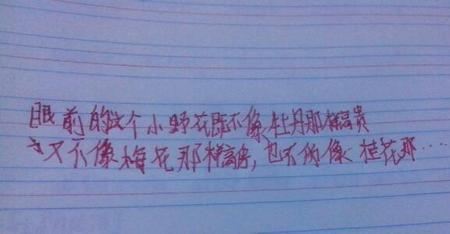 眼前的这个小野花既不像牡丹那样富贵
又不像梅花那样高 ，也不向像桂花那…